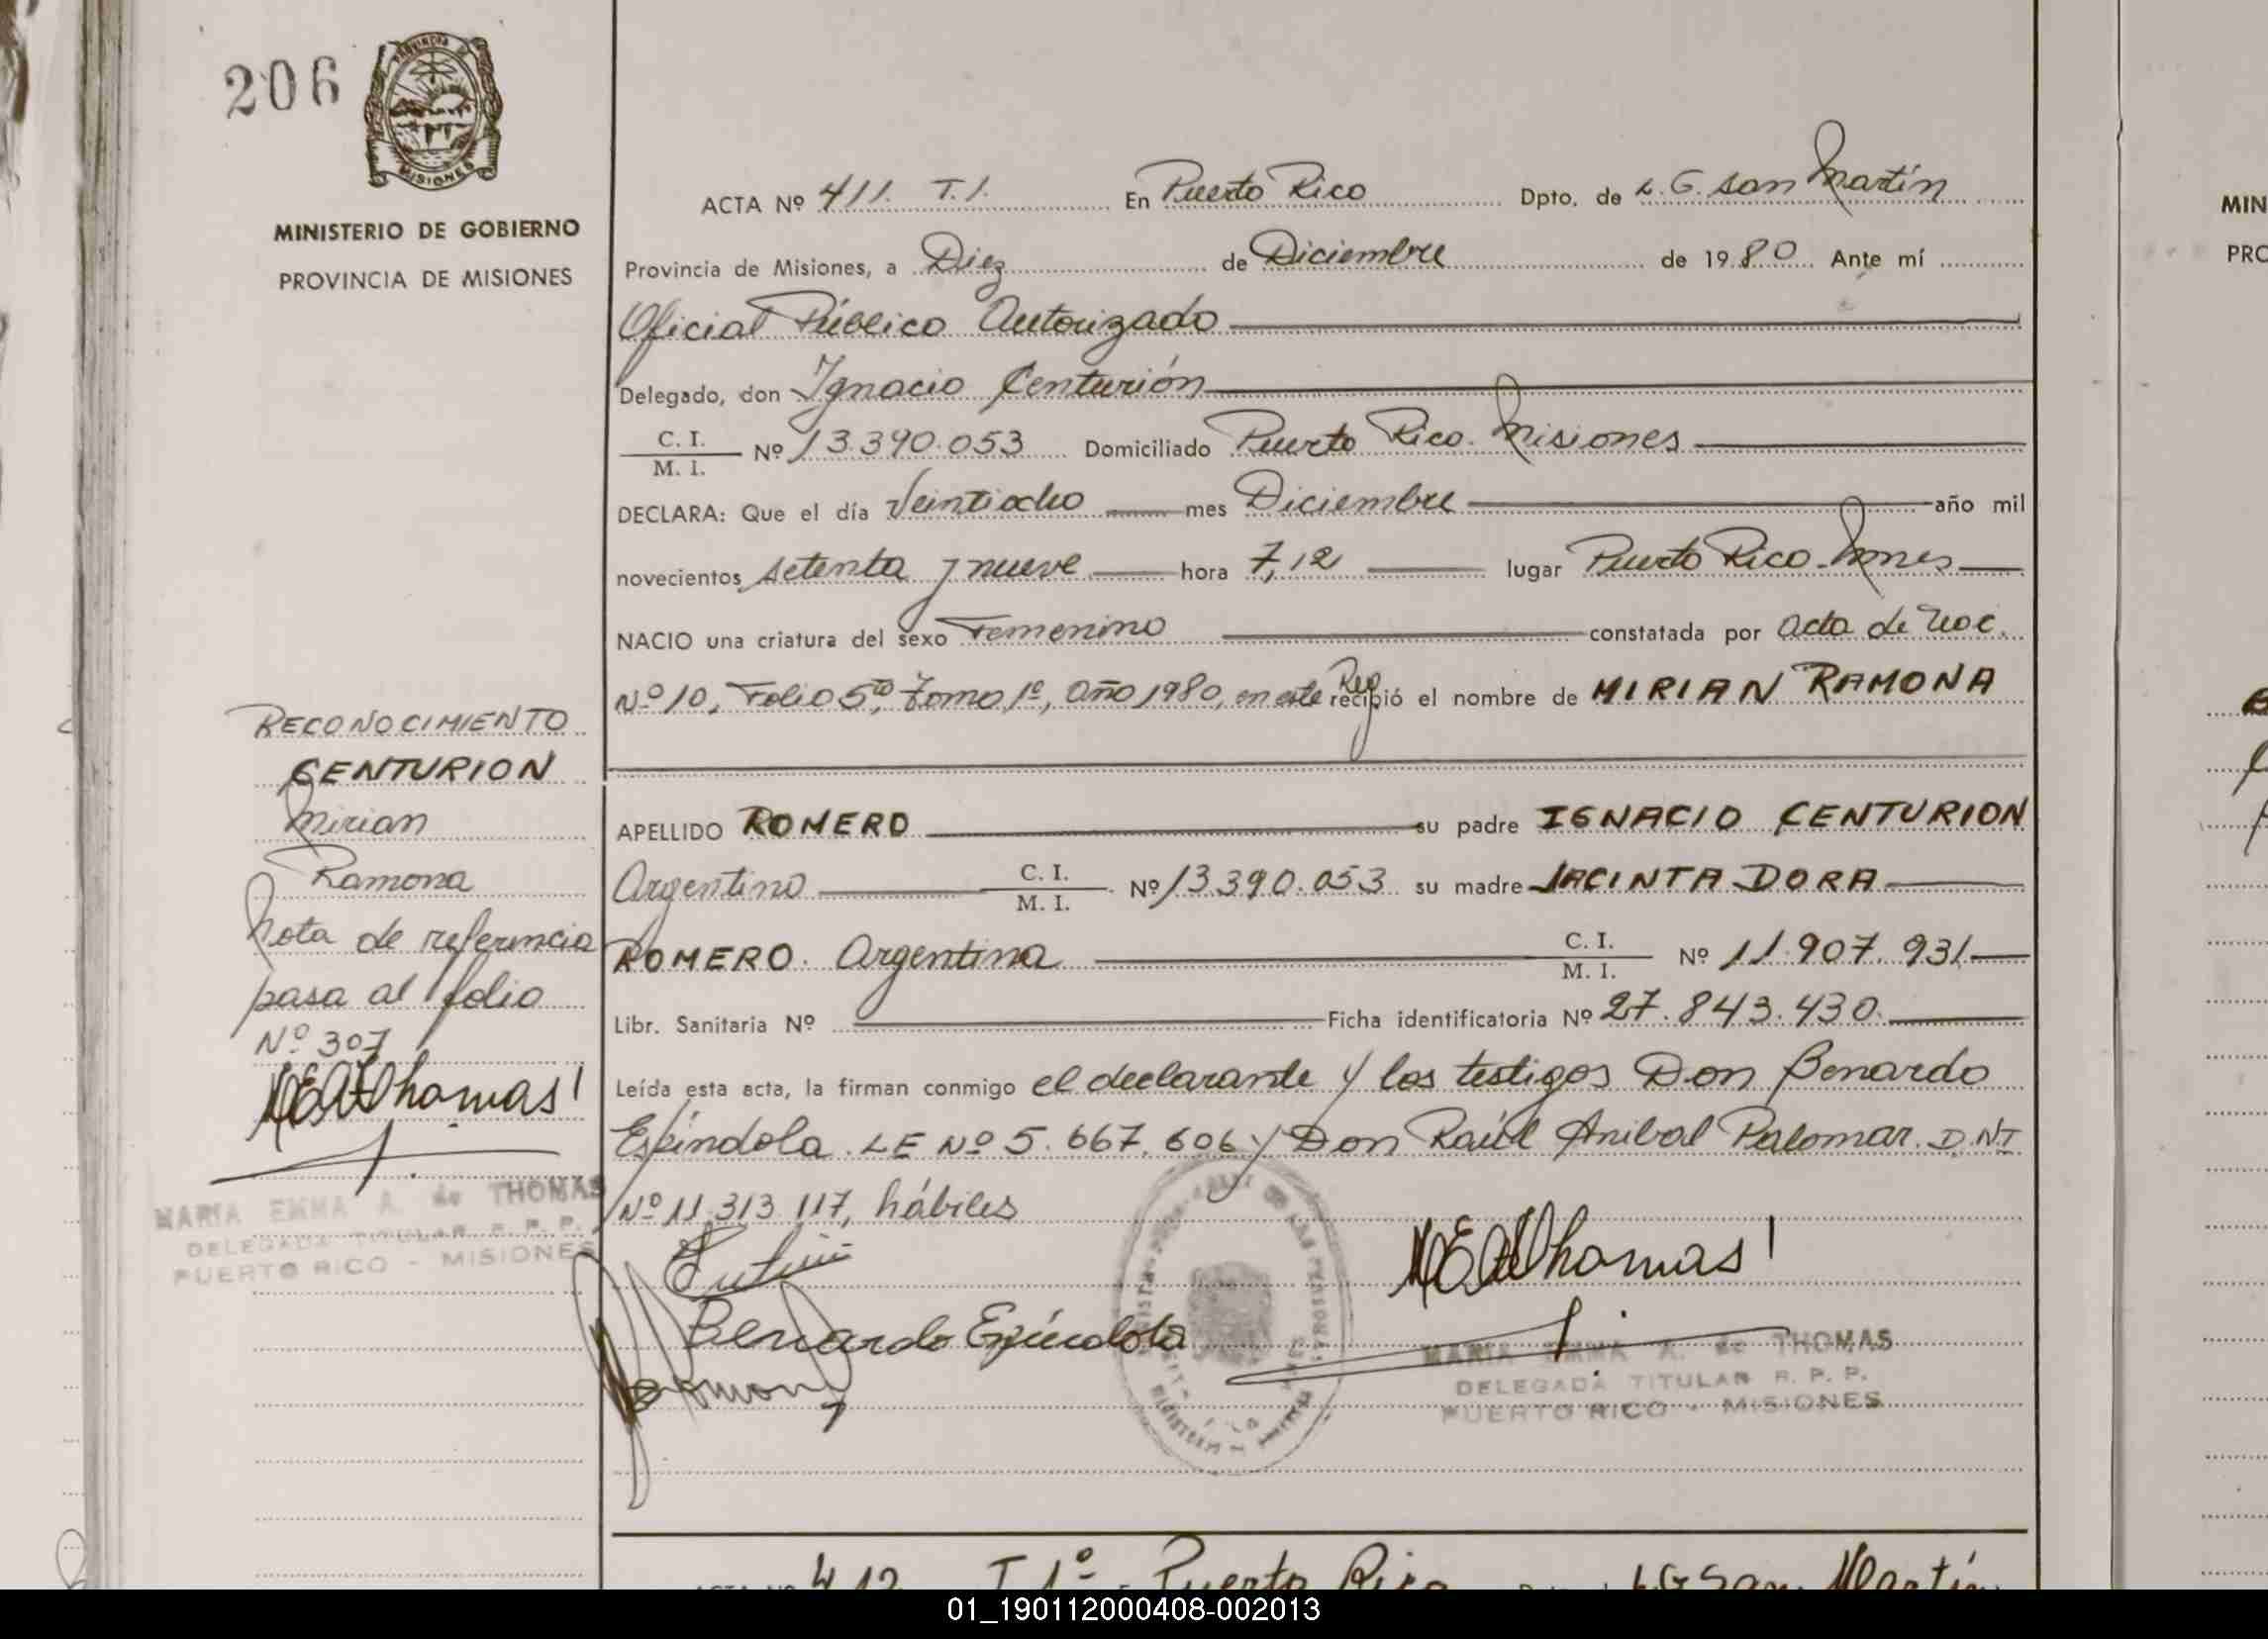 206
PROVINCIA DE
MISIONES
MINISTERIO DE GOBIERNO
PROVINCIA DE MISIONES
ACTA Nº 411. T.1. En Puerto Rico Dpto. de L.G. San Martín
Provincia de Misiones, a Diez de Diciembre de 1980 Ante mí
Oficial Público Autorizado
Delegado, don Ignacio Centurión
C. I.
M. I. Nº 13.390.053 Domiciliado Puerto Rico. Misiones
DECLARA: Que el día Veintiocho mes Diciembre año mil
novecientos setenta y nueve hora 7,12 lugar Puerto Rico - Mnes
NACIO una criatura del sexo Femenino constatada por acta de Nac.
Nº 10, Folio 5to, Tomo 1º, Año 1980, en este Reg recibió el nombre de MIRIAN RAMONA
RECONOCIMIENTO
CENTURION
Mirian
Ramona
Nota de referencia
pasa al folio
Nº 307
MEAdThomas
MARIA EMMA A. de THOMAS
DELEGADA TITULAR R. P. P.
PUERTO RICO - MISIONES
APELLIDO ROMERO su padre IGNACIO CENTURION
Argentino C. I.
M. I. Nº 13.390.053 su madre JACINTA DORA
ROMERO. Argentina C. I.
M. I. Nº 11.907.931
Libr. Sanitaria Nº Ficha identificatoria Nº 27.843.430.
Leída esta acta, la firman conmigo el declarante y los testigos Don Benardo
Espíndola. LE Nº 5.667.606 y Don Raúl Anibal Palomar. D.N.I
Nº 11.313.117, hábiles
MEAdThomas
Benardo Espíndola
MARIA EMMA A. de THOMAS
DELEGADA TITULAR R. P. P.
PUERTO RICO - MISIONES
ACTA Nº 412 T 1º En Puerto Rico Dpto. de L.G San Martín
MIN
PRO
01_190112000408-002013